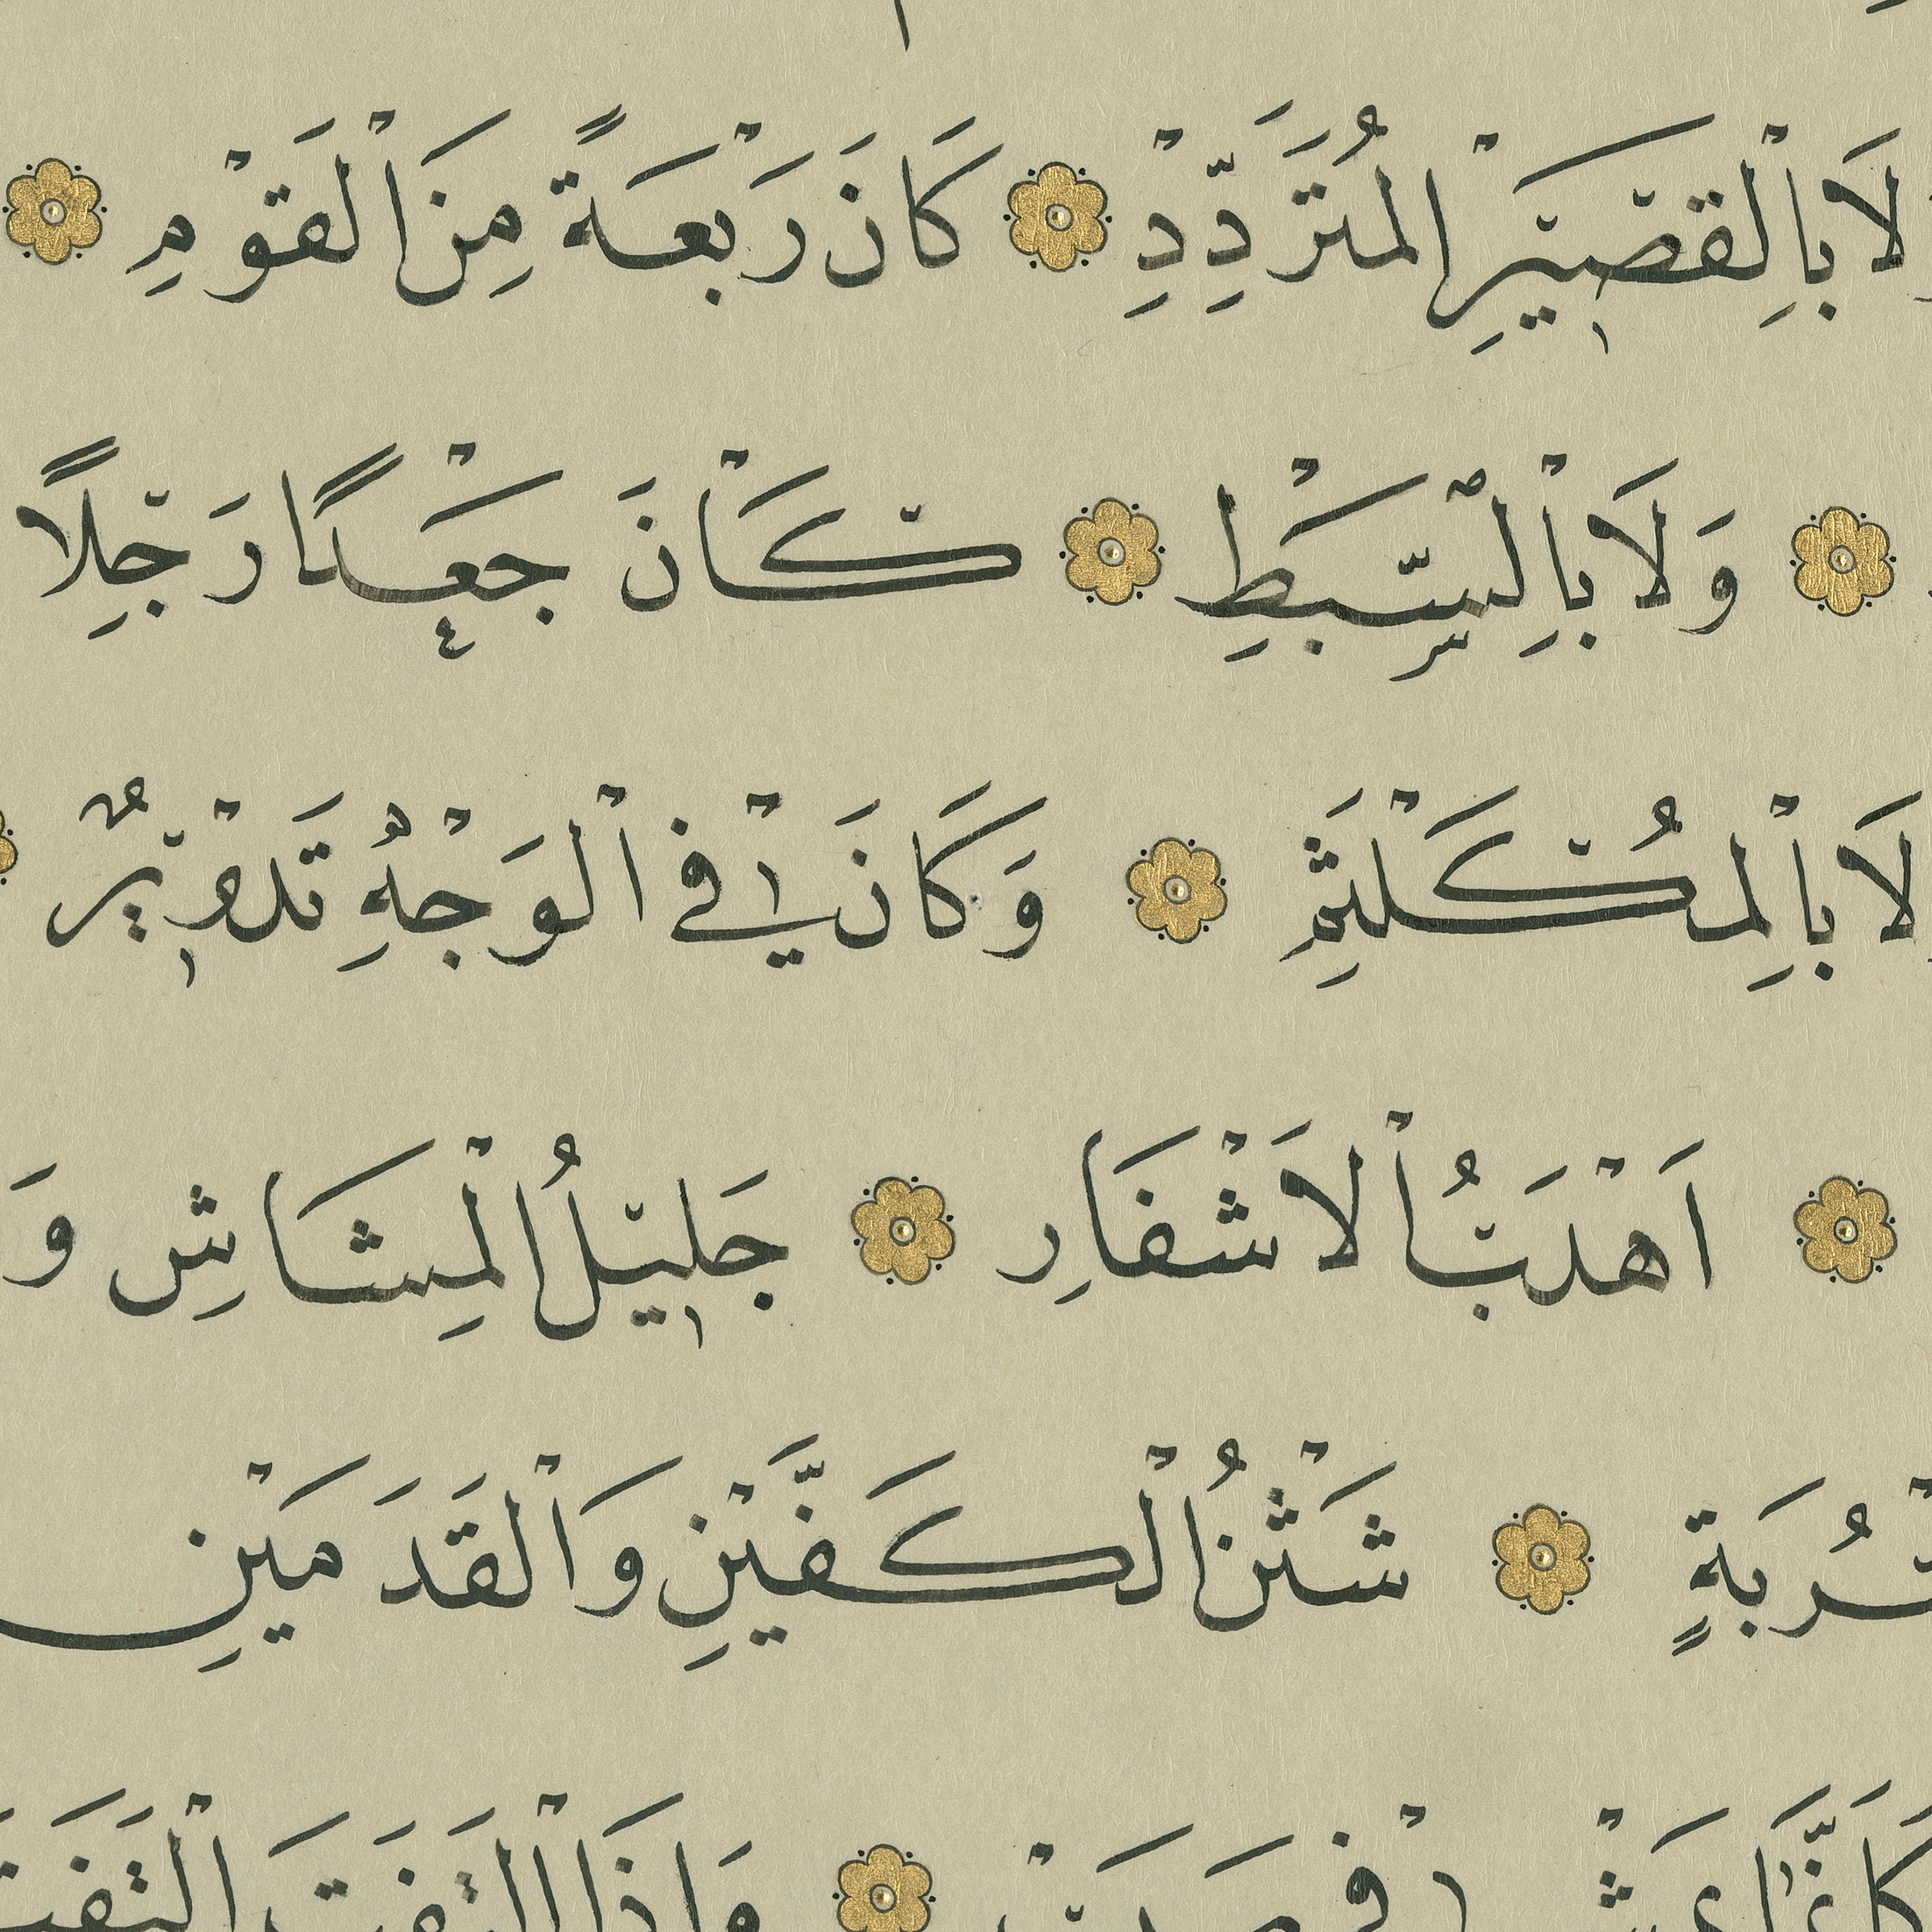 لَا بِالْقَصِيرِ الْمُتَرَدِّدِ كَانَ رَبْعَةً مِنَ الْقَوْمِ
وَلَا بِالسَّبْطِ كَانَ جَعْدًا رَجِلًا
لَا بِالْمُكَلْثَمِ وَكَانَ فِي الْوَجْهِ تَدْوِيرٌ
اَهْدَبُ الْاَشْفَارِ جَلِيلُ الْمُشَاشِ وَ
شَثْنُ الْكَفَّيْنِ وَالْقَدَمَيْنِ
كَاَنَّمَا فِي صَبَبٍ وَاِذَا الْتَفَتَ الْتَفَتَ